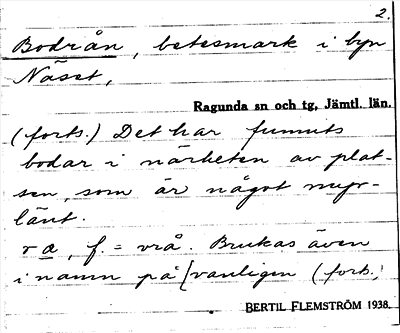 2.
Bodrån, betesmark i byn
Näset,
Ragunda sn och tg, Jämtl. län.
(forts.) Det har funnits
bodar i närheten av plat-
sen, som är något myr-
länt.
ra, f. = vrå. Brukas även
i namn på [vanligen (forts.)
BERTIL FLEMSTRÖM 1938.